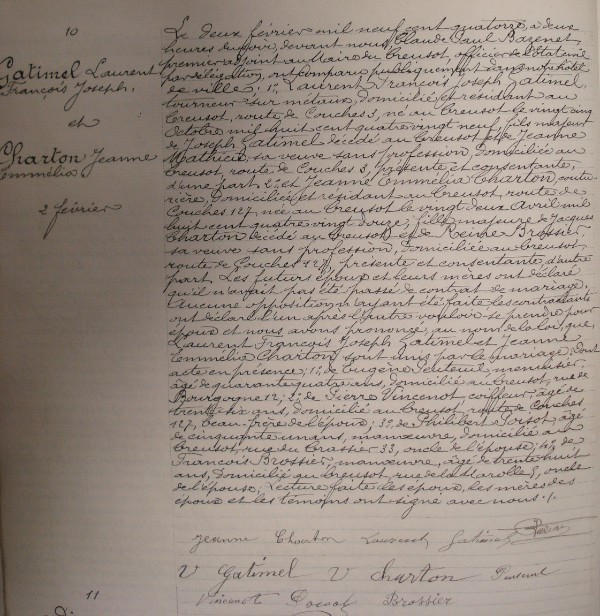 10
Gatimel Laurent
François Joseph,
et
Charton Jeanne
Emmélia
2 février
Le deux février mil neuf cent quatorze, à deux
heures du soir, devant nous, Claude Paul Bazenet,
premier adjoint au Maire du Creusot, officier de l'Etat civil
par délégation, ont comparu publiquement dans notre hôtel
de ville; 1º Laurent François Joseph Gatimel,
tourneur sur métaux, domicilié et résidant au
Creusot, route de Couches 3, né au Creusot le vingt cinq
Octobre mil huit cent quatre vingt neuf, fils majeur
de Joseph Gatimel décédé au Creusot et de Jeanne
Mathieu, sa veuve sans profession, domiciliée au
Creusot, route de Couches 3, présente et consentante,
d'une part. 2º et Jeanne Emmélia Charton, coutu-
rière, domiciliée et résidant au Creusot, route de
Couches 127, née au Creusot le vingt deux Avril mil
huit cent quatre vingt douze, fille majeure de Jacques
Charton décédé au Creusot et de Reine Brossier,
sa veuve sans profession, domiciliée au Creusot,
route de Couches 127, présente et consentante, d'autre
part. Les futurs époux et leurs mères ont déclaré
qu'il n'avait pas été passé de contrat de mariage.
Aucune opposition n'ayant été faite, les contractants
ont déclaré l'un après l'autre vouloir se prendre pour
époux et nous avons prononcé, au nom de la loi, que
Laurent François Joseph Gatimel et Jeanne
Emmélia Charton sont unis par le mariage, dont
acte en présence; 1º de Eugène menuisier,
âgé de quarante quatre ans, domicilié au Creusot, rue de
Bourgogne 12; 2º de Pierre Vincenot, coiffeur, âgé de
trente six ans, domicilié au Creusot, route de Couches
127, beau-frère de l'époux; 3º de Philibert âgé
de cinquante un ans, manœuvre, domicilié au
Creusot, rue du Crassier 33, oncle de l'épouse; 4º de
François Brossier, manœuvre, âgé de trente huit
ans, domicilié au Creusot, rue de la oncle
de l'épouse. Lecture faite les époux, les mères des
époux et les témoins ont signé avec nous./.
Jeanne Charton Laurent Gatimel
V Gatimel V Charton
Vincenot Brossier
11